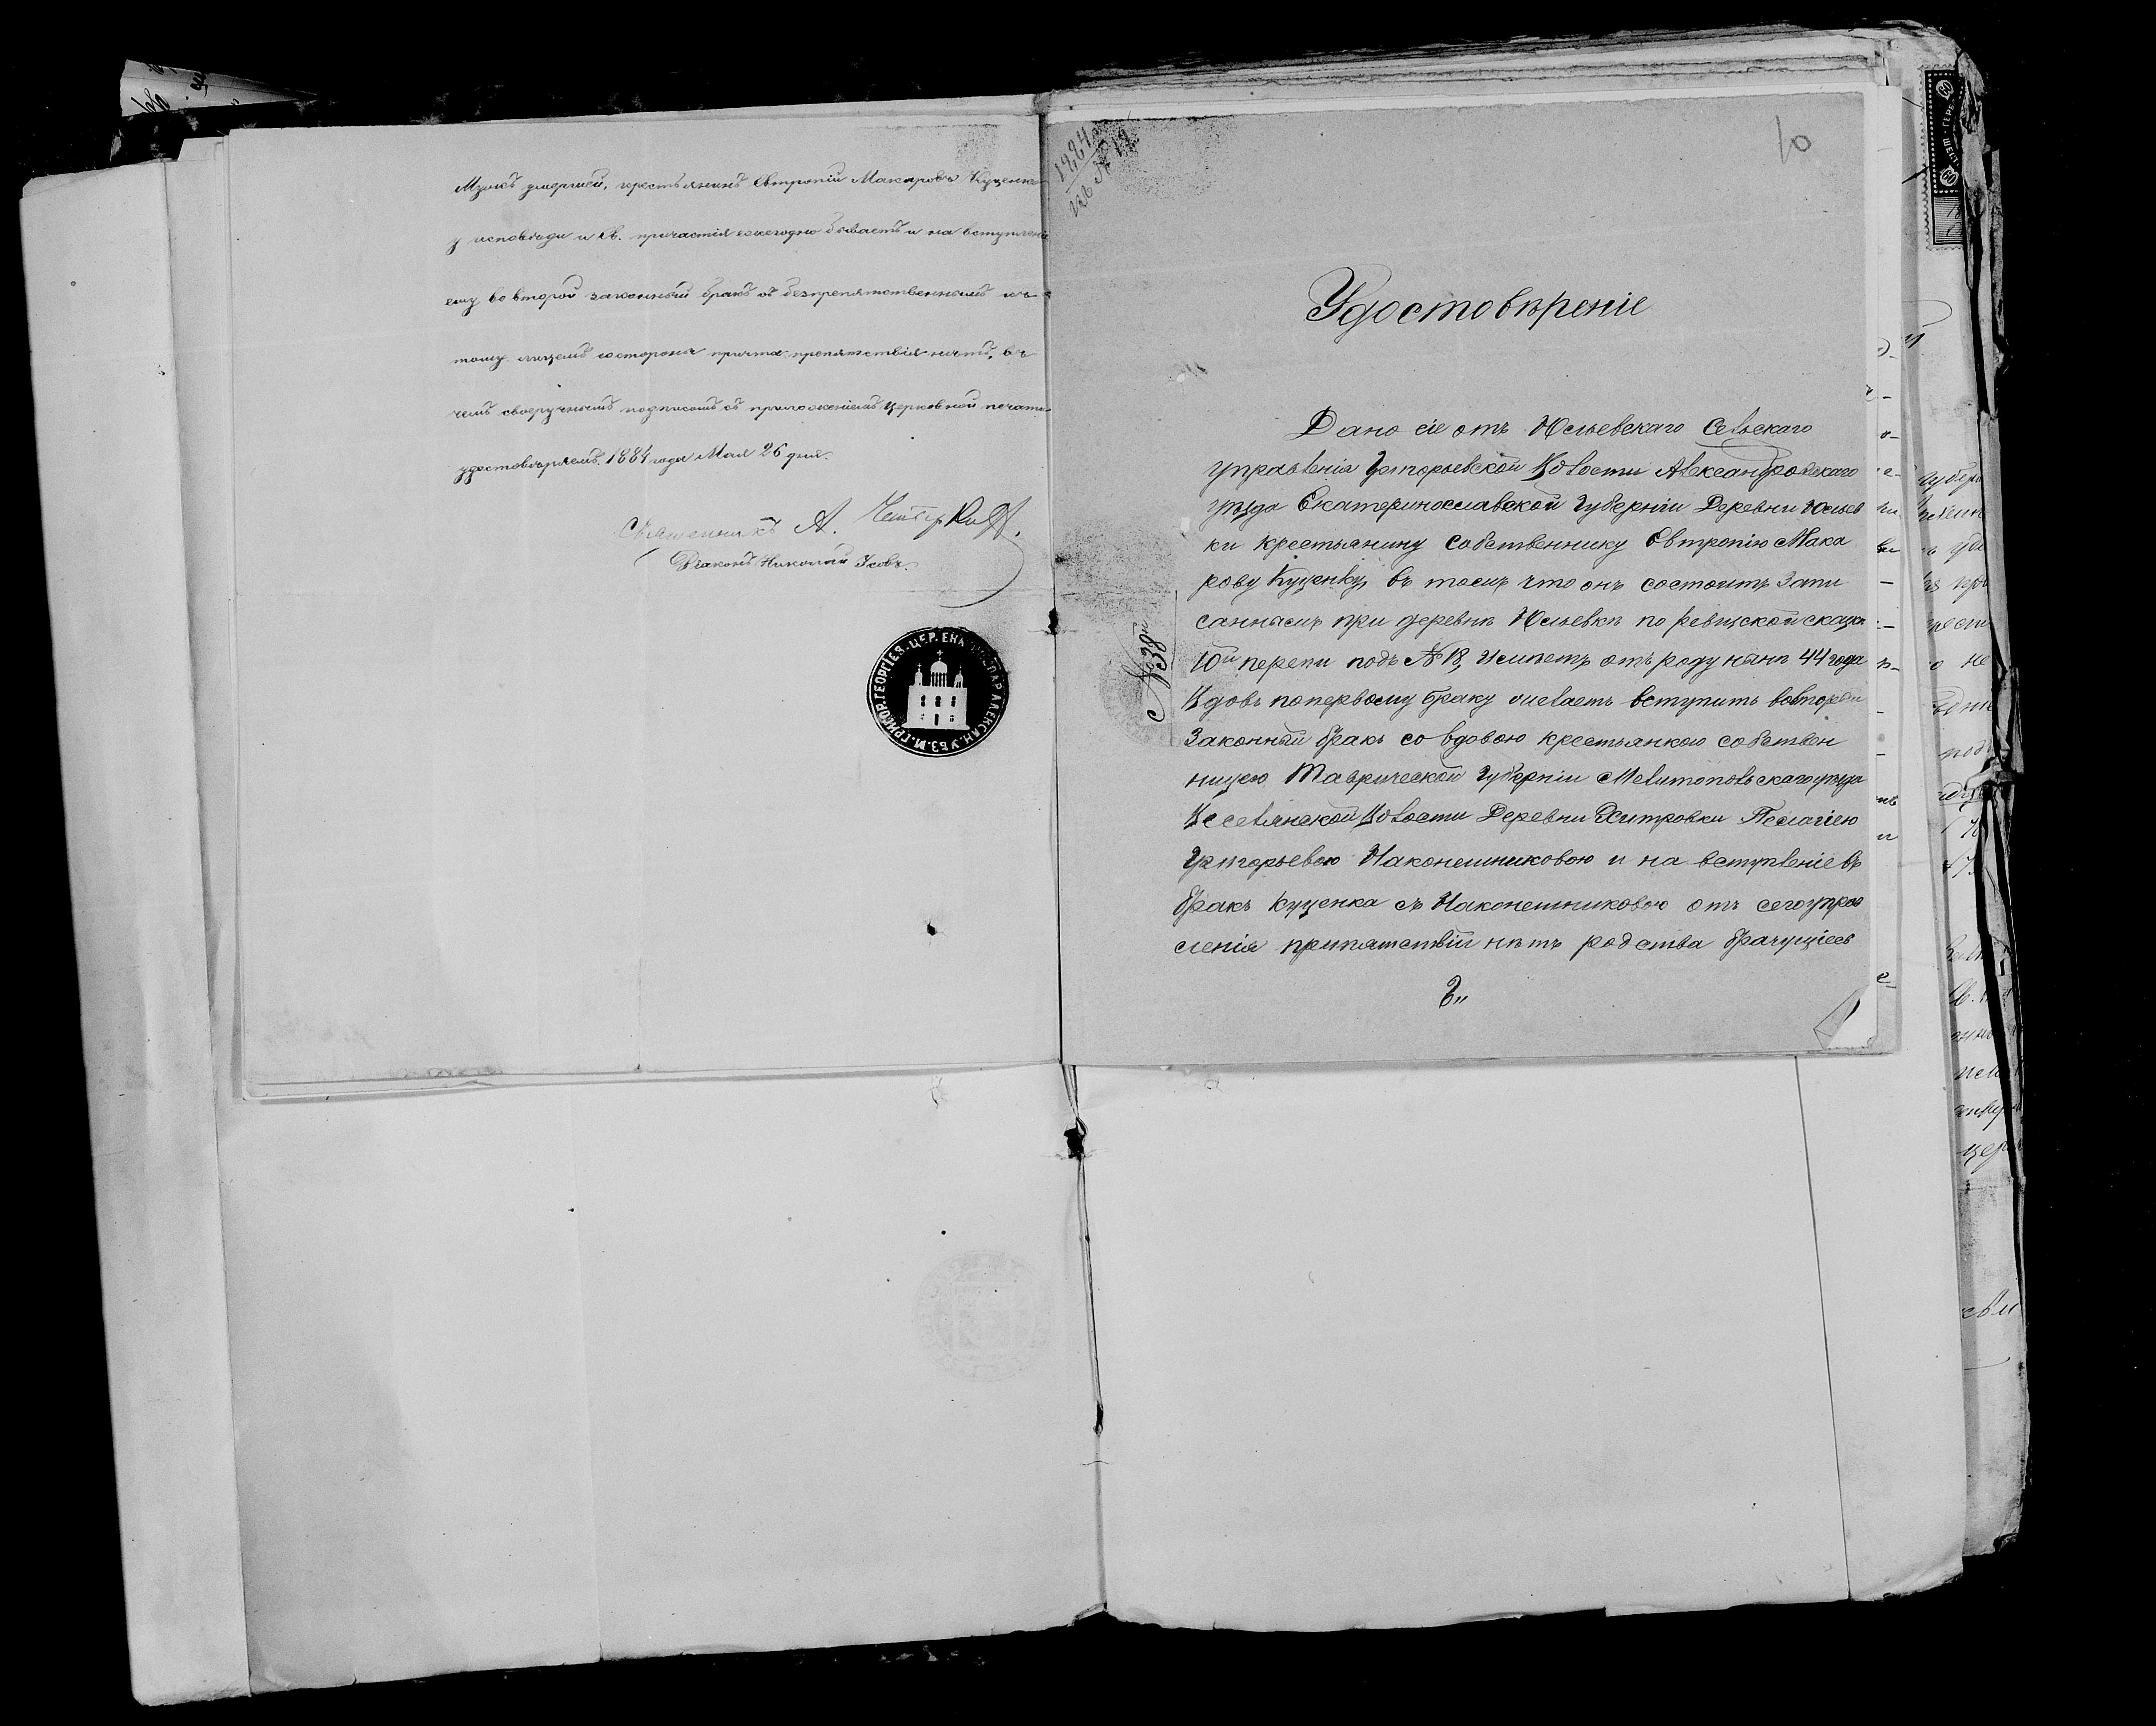 Мужъ умершей, крестьянинъ Евтропій Макаровъ Куценко
у исповѣди и св. причастія ежегодно бываетъ и на вступленіе
ему во второй законный бракъ съ безпрепятственнымъ къ
тому лицемъ со стороны причта препятствія нѣтъ, въ
чемъ своеручнымъ подписомъ съ приложеніемъ церковной печати
удостовѣряемъ. 1884 года Мая 26 дня.
Священникъ А.
Діаконъ Николай
ГРИГОР. ГЕОРГІЕВ. ЦЕР. ЕКА. ЕПАР. АЛЕКСАН. УѢЗ.
10
1884
№ 19
Удостовѣреніе
№ 38й
Дано сіе отъ Юльевскаго Сельскаго
управленія Григорьевской Волости Александровскаго
уѣзда Екатеринославской Губерніи Деревни Юльев
ки крестьянину собственнику Евтропію Мака
рову Куценку, въ томъ что онъ состоитъ Запи
саннымъ при деревнѣ Юльевкѣ по ревизской сказкѣ
10й перепи подъ № 18, Имѣетъ отъ роду нынѣ 44 года
Вдовъ по первому браку желаетъ вступить во вторый
Законный бракъ со вдовою крестьянкою собствен
ницею Таврической Губерніи Мелитопольскаго уѣзда
Веселянской Волости Деревни Хитровки Пелагіею
Григорьевою Наконешниковою и на вступленіе въ
бракъ Куценка съ Наконешниковою отъ сего упра
вленія припятствій нѣтъ родства брачущіесь